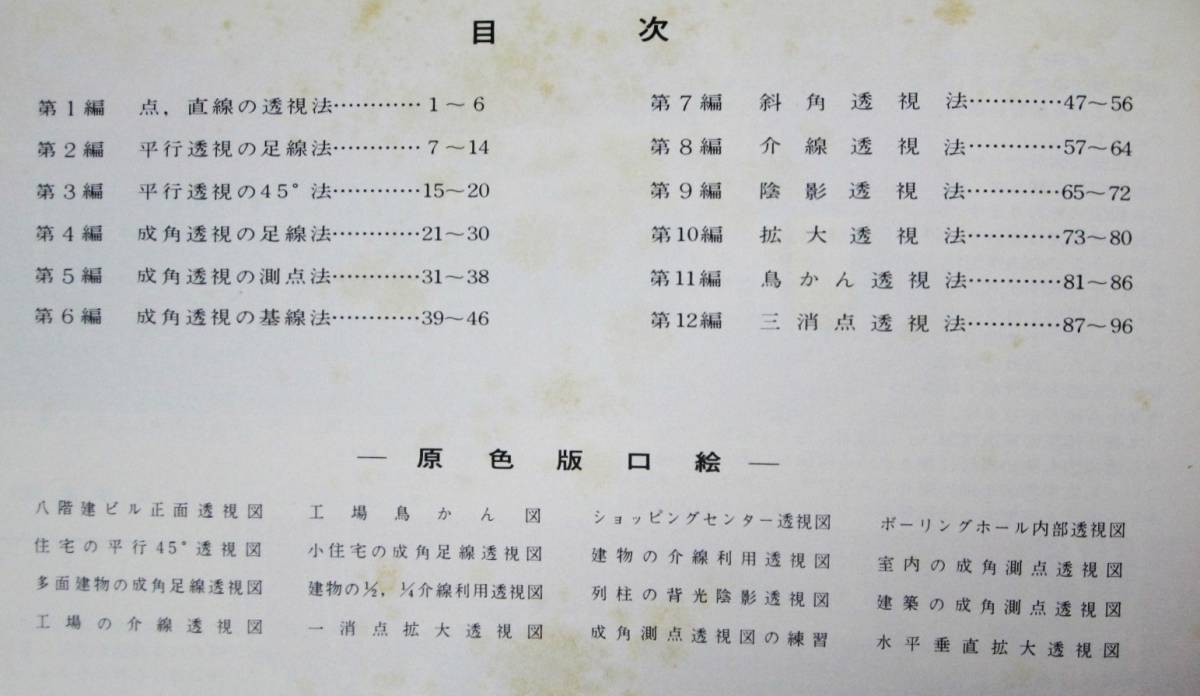 目次
第1編 点,直線の透視法…………1～6
第2編 平行透視の足線法…………7～14
第3編 平行透視の45°法…………15～20
第4編 成角透視の足線法…………21～30
第5編 成角透視の測点法…………31～38
第6編 成角透視の基線法…………39～46
第7編 斜角透視法…………47～56
第8編 介線透視法…………57～64
第9編 陰影透視法…………65～72
第10編 拡大透視法…………73～80
第11編 鳥かん透視法…………81～86
第12編 三消点透視法…………87～96
―原色版口絵―
八階建ビル正面透視図
住宅の平行45°透視図
多面建物の成角足線透視図
工場の介線透視図
工場鳥かん図
小住宅の成角足線透視図
建物の½,¼介線利用透視図
一消点拡大透視図
ショッピングセンター透視図
建物の介線利用透視図
列柱の背光陰影透視図
成角測点透視図の練習
ボーリングホール内部透視図
室内の成角測点透視図
建築の成角測点透視図
水平垂直拡大透視図